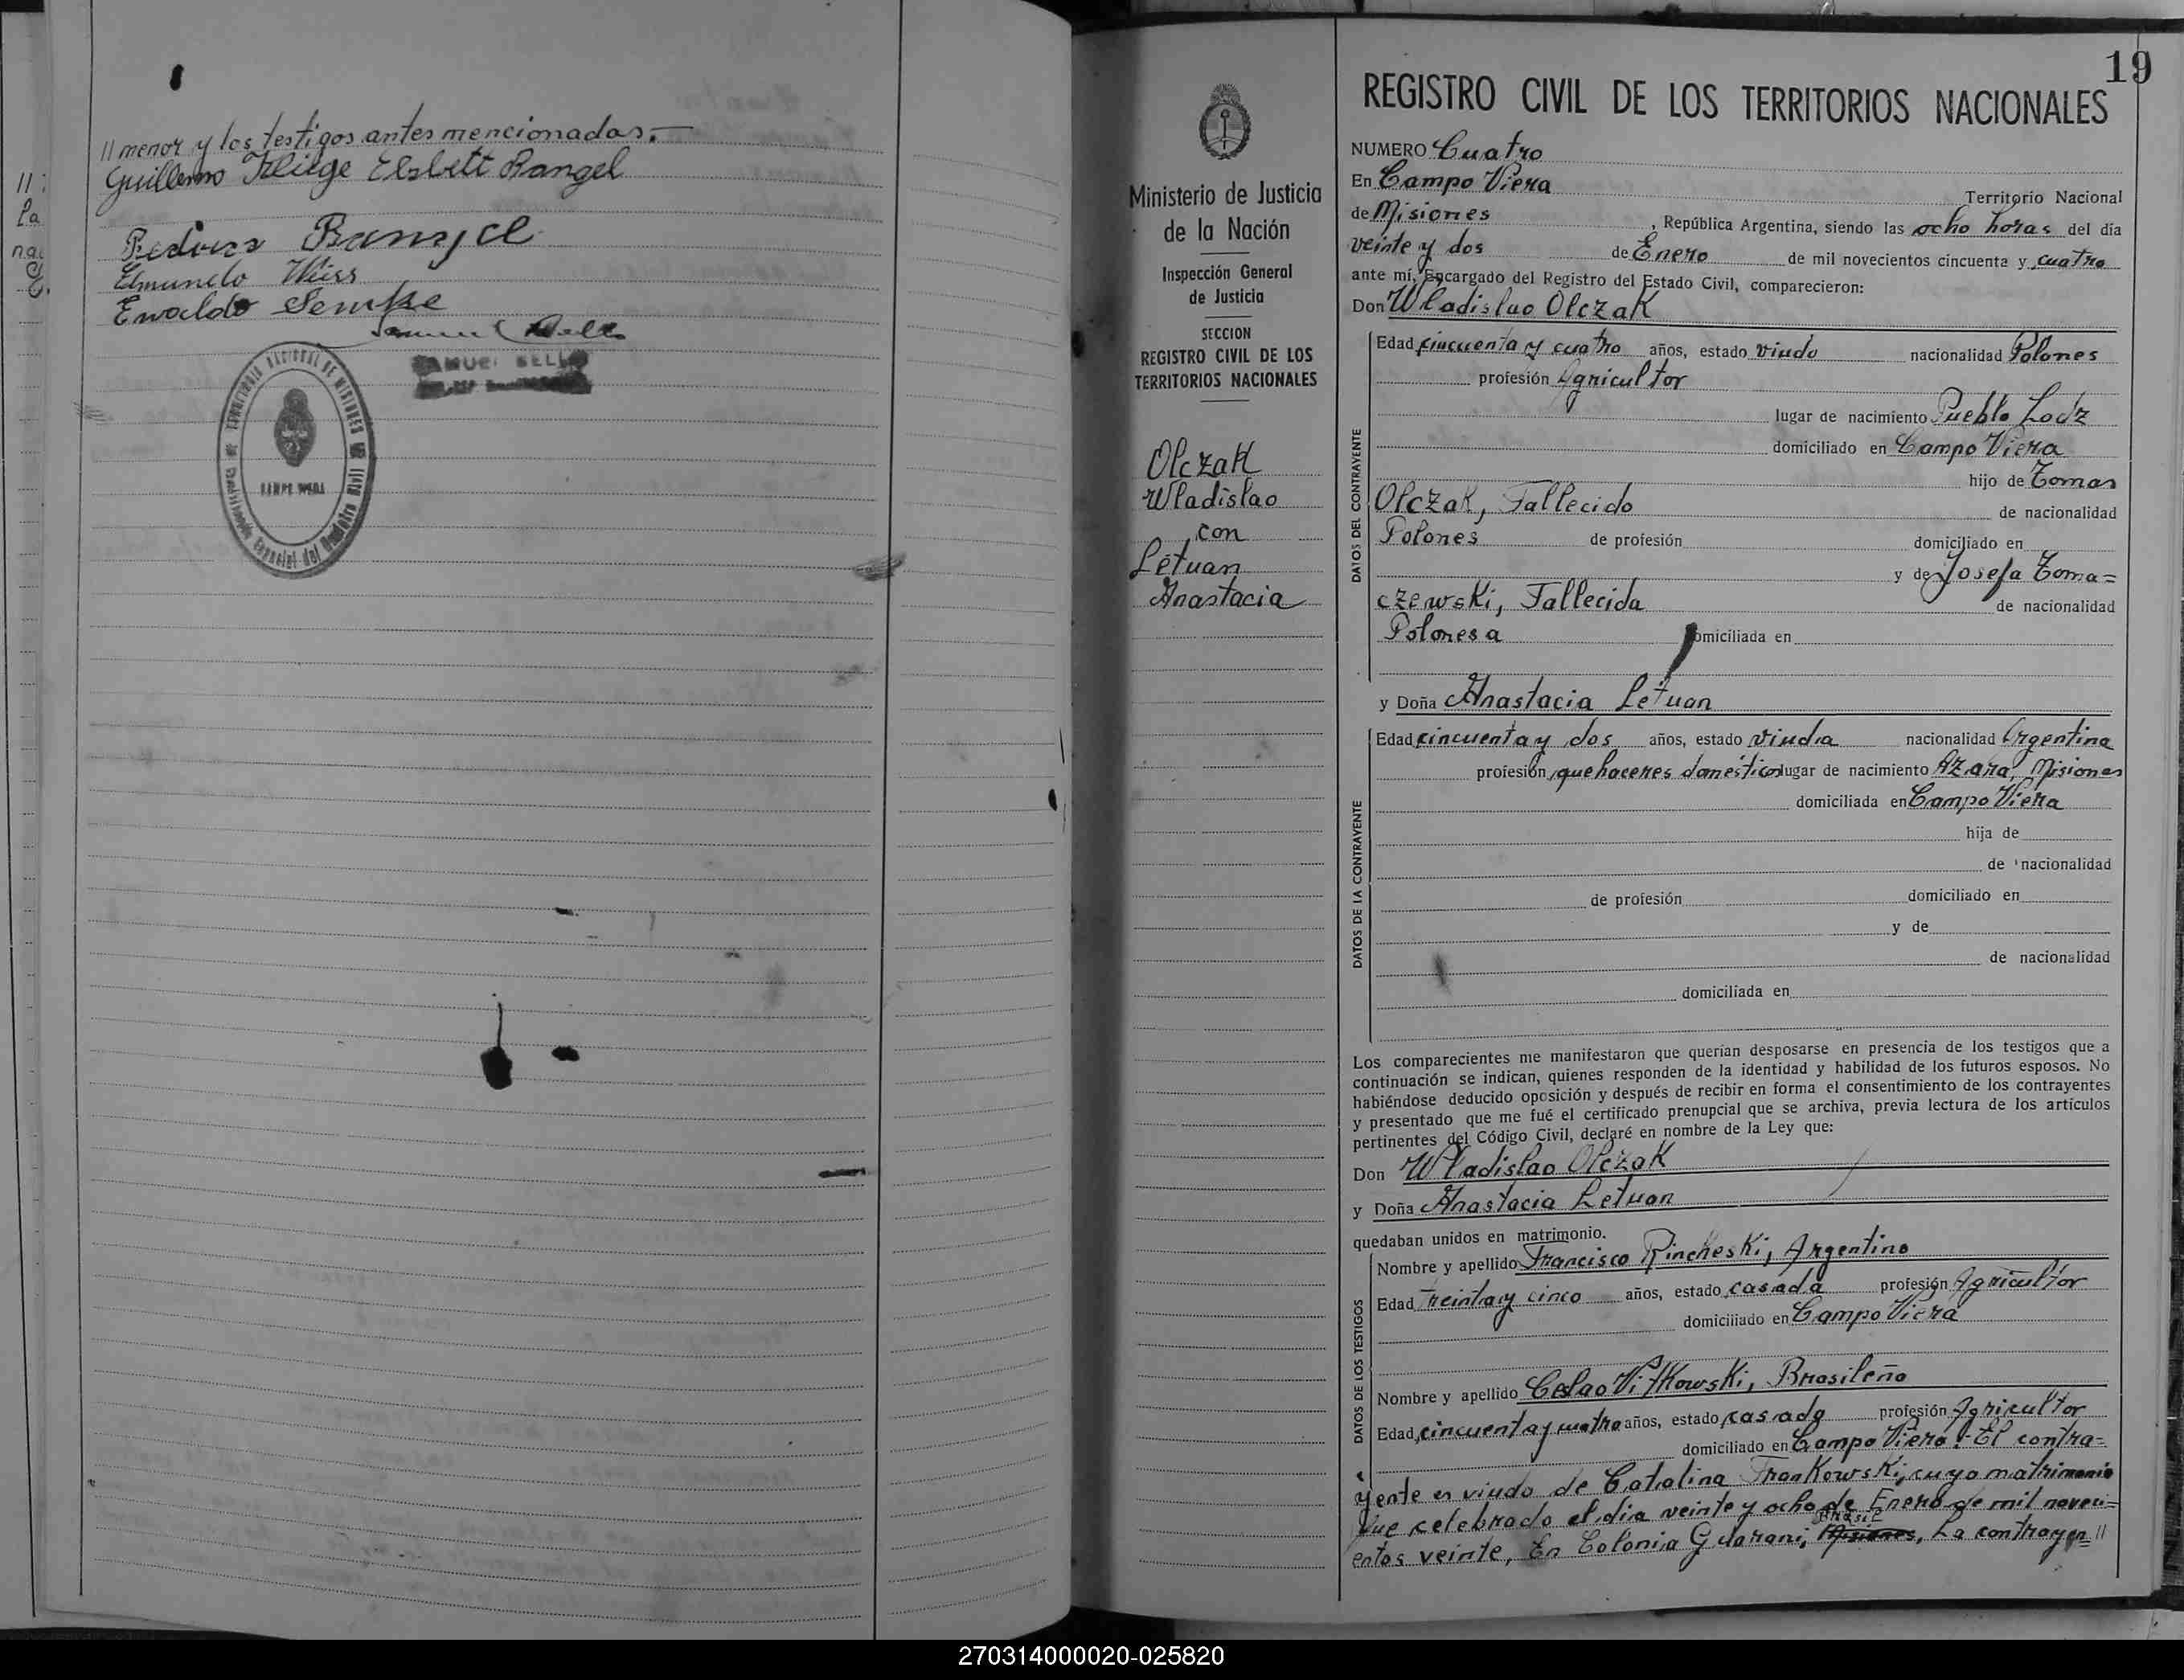 // menor y los testigos antes mencionados.-
Guillermo Fliege Elsbett Rangel
Edmundo Wiess
Ewaldo
SAMUEL BELLO
CAMPO VIERA
19
REGISTRO CIVIL DE LOS TERRITORIOS NACIONALES
Ministerio de Justicia
de la Nación
Inspección General
de Justicia
SECCION
REGISTRO CIVIL DE LOS
TERRITORIOS NACIONALES
Olczak
Wladislao
con
Letuan
Anastacia
NUMERO Cuatro
En Campo Viera Territorio Nacional
de Misiones, República Argentina, siendo las ocho horas del día
veinte y dos de Enero de mil novecientos cincuenta y cuatro
ante mí, Encargado del Registro del Estado Civil, comparecieron:
Don Wladislao Olczak
DATOS DEL CONTRAYENTE
Edad cincuenta y cuatro años, estado viudo nacionalidad Polones
profesión Agricultor
lugar de nacimiento Pueblo Lodz
domiciliado en Campo Viera
hijo de Tomas
Olczak, Fallecido de nacionalidad
Polones de profesión domiciliado en
y de Josefa Toma=
czewski, Fallecida de nacionalidad
Polonesa domiciliada en
y Doña Anastacia Letuan
DATOS DE LA CONTRAYENTE
Edad cincuenta y dos años, estado viuda nacionalidad Argentina
profesión quehaceres domésticos lugar de nacimiento Azara, Misiones
domiciliada en Campo Viera
hija de
de nacionalidad
de profesión domiciliado en
y de
de nacionalidad
domiciliada en
Los comparecientes me manifestaron que querían desposarse en presencia de los testigos que a
continuación se indican, quienes responden de la identidad y habilidad de los futuros esposos. No
habiéndose deducido oposición y después de recibir en forma el consentimiento de los contrayentes
y presentado que me fué el certificado prenupcial que se archiva, previa lectura de los artículos
pertinentes del Código Civil, declaré en nombre de la Ley que:
Don Wladislao Olczak
y Doña Anastacia Letuan
quedaban unidos en matrimonio.
DATOS DE LOS TESTIGOS
Nombre y apellido Francisco Rincheski, Argentino
Edad treinta y cinco años, estado casada profesión Agricultor
domiciliado en Campo Viera
Nombre y apellido Ceslao Vitkowski, Brasileño
Edad cincuenta y cuatro años, estado casado profesión Agricultor
domiciliado en Campo Viera.- El contra=
yente es viudo de Catalina Frankowski, cuyo matrimonio
fue celebrado el dia veinte y ocho de Enero de mil noveci=
entos veinte, En Colonia Guarani, Brasil Misiones, La contrayen //
270314000020-025820